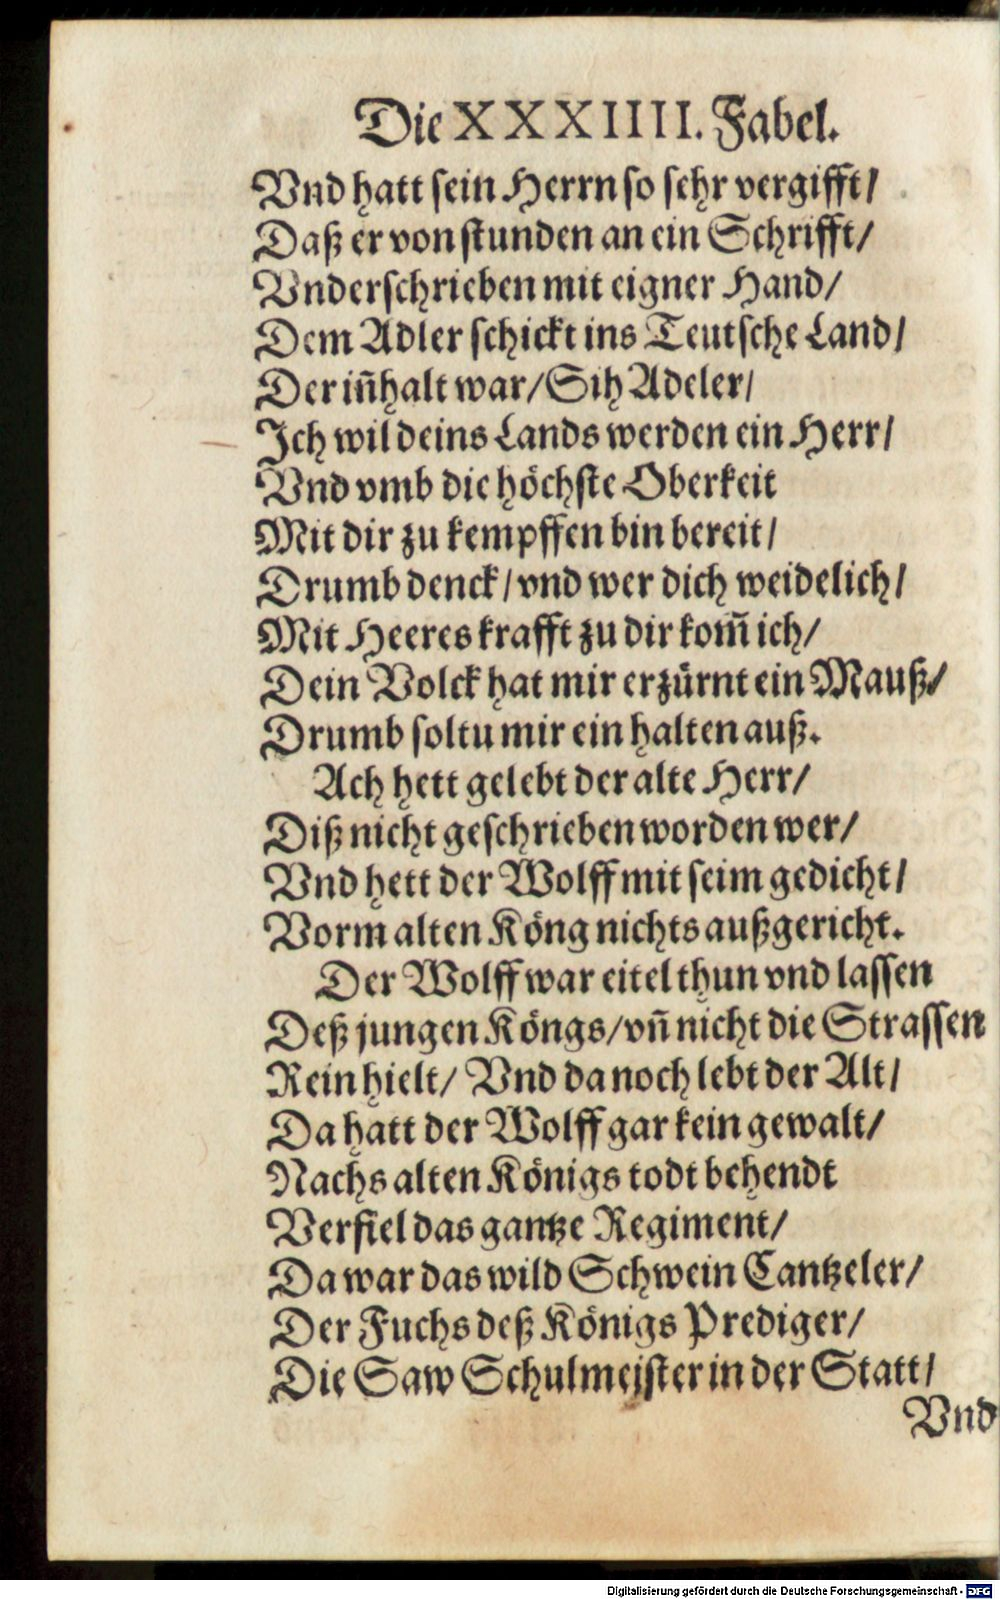 Die XXXIIII. Fabel.
Vnd hatt sein Herrn so sehr vergifft/
Daß er von stunden an ein Schrifft/
Vnderschrieben mit eigner Hand/
Dem Adler schickt ins Teutsche Land/
Der iñhalt war/ Sih Adeler/
Ich wil deins Lands werden ein Herr/
Vnd vmb die höchste Oberkeit
Mit dir zu kempffen bin bereit/
Drumb denck/ vnd wer dich weidelich/
Mit Heeres krafft zu dir kom̃ ich/
Dein Volck hat mir erzürnt ein Mauß/
Drumb soltu mir ein halten auß.
Ach hett gelebt der alte Herr/
Diß nicht geschrieben worden wer/
Vnd hett der Wolff mit seim gedicht/
Vorm alten Köng nichts außgericht.
Der Wolff war eitel thun vnd lassen
Deß jungen Köngs/ vñ nicht die Strassen
Rein hielt/ Vnd da noch lebt der Alt/
Da hatt der Wolff gar kein gewalt/
Nachs alten Königs todt behendt
Verfiel das gantze Regiment/
Da war das wild Schwein Cantzeler/
Der Fuchs deß Königs Prediger/
Die Saw Schulmeister in der Statt/
Vnd
Digitalisierung gefördert durch die Deutsche Forschungsgemeinschaft - DFG